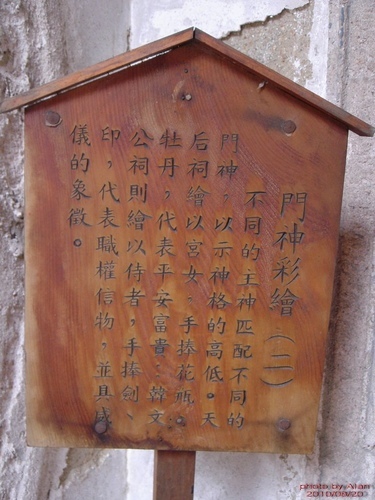 門神彩繪(二)
不同的主神匹配不同的
門神，以示神格的高低。天
后祠繪以宮女，手捧花瓶、
牡丹，代表平安富貴；韓文
公祠則繪以侍者，手捧劍、
印，代表職權信物，並具威
儀的象徵。
photo by Alan
2010/08/20